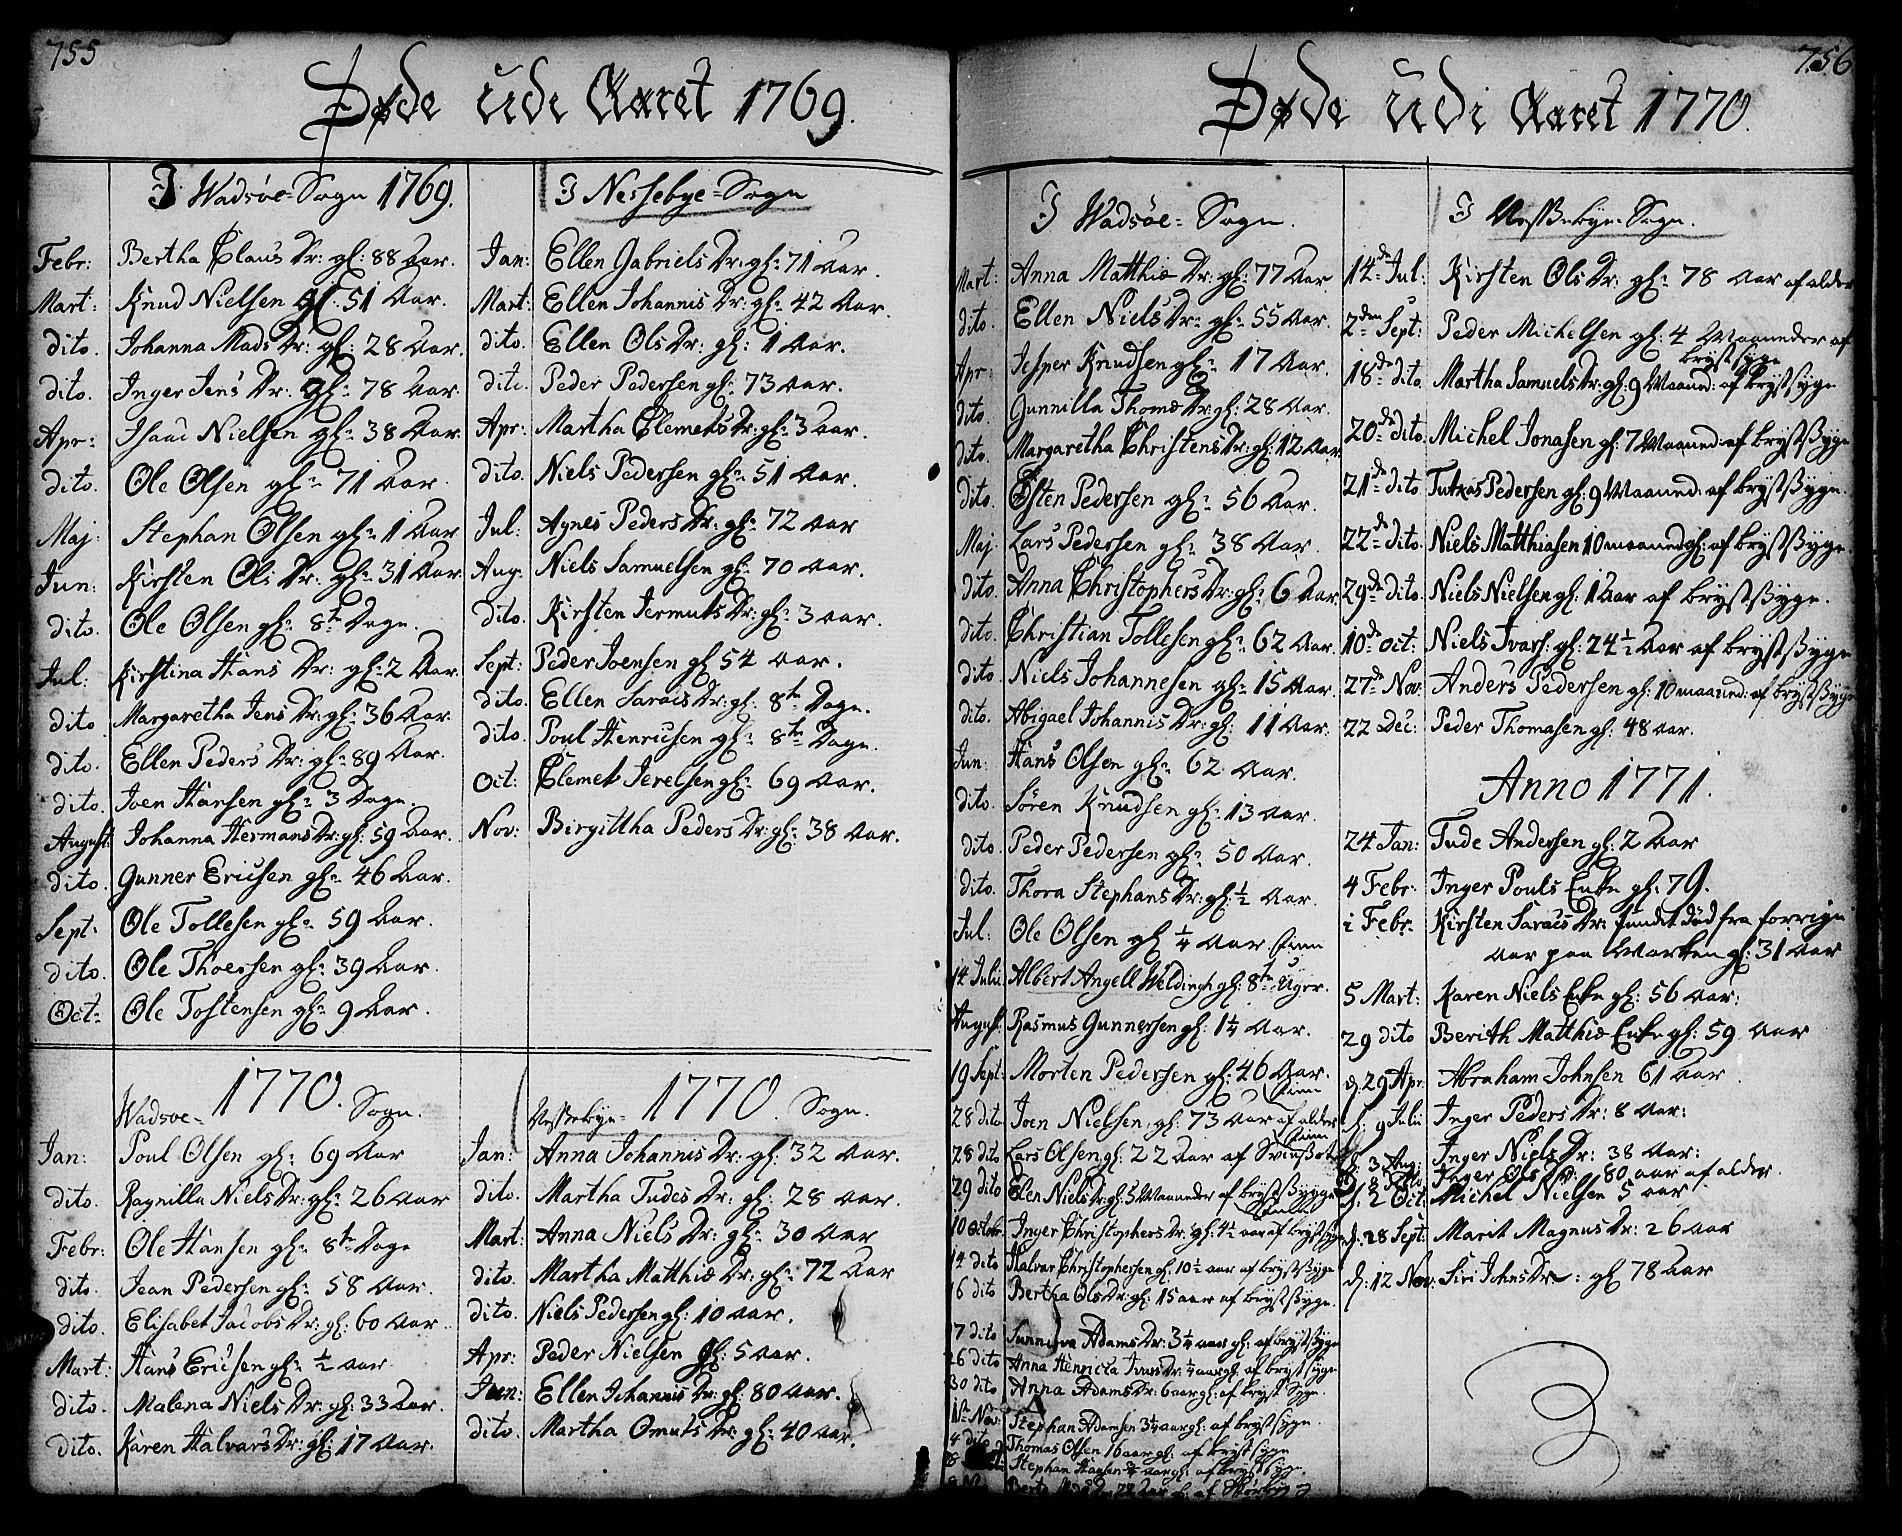 755
Døde udi Aaret 1769.
I Wadsøe-Sogn 1769.
Febr: Bertha Claus Dr: gl: 88 Aar.
Mart: Knud Nielsen gl: 51 Aar.
dito. Johanna Mads Dr: gl: 28 Aar.
dito. Inger Jens Dr: gl: 78 Aar.
Apr: Isaac Nielsen gl: 38 Aar.
dito. Ole Olsen gl: 71 Aar.
Maj: Stephan Olsen gl: 1 Aar
Jun: Kirsten Ols Dr: gl: 31 Aar
dito. Ole Olsen gl: 8te Dage.
Jul: Kirstina Hans Dr: gl: 2 Aar
dito Margaretha Jens Dr: gl: 36 Aar.
dito. Ellen Peders Dr: gl: 89 Aar.
dito. Joen Hansen gl: 3 Dage.
August: Johanna Hermans Dr: gl: 59 Aar.
dito. Gunner Ericsen gl: 46 Aar.
Sept: Ole Tollesen gl: 59 Aar.
dito. Ole Thoersen gl: 39 Aar.
Oct: Ole Tostensen gl: 9 Aar.
I Nessebye-Sogn
Jan: Ellen Gabriels Dr: gl: 71 Aar.
Mart: Ellen Johannis Dr: gl: 42 Aar.
dito. Ellen Ols Dr: gl: 1 Aar.
dito. Peder Pedersen gl: 73 Aar.
Apr: Martha Clemets Dr: gl: 3 Aar.
dito. Niels Pedersen gl: 51 Aar.
Jul: Agnes Peders Dr: gl: 72 Aar
Aug. Niels Samuelsen gl: 70 Aar.
dito. Kirsten Jermuts Dr: gl: 3 Aar.
Sept: Peder Joensen gl 54 Aar.
dito. Ellen Saraes Dr: gl: 8te Dage.
dito. Poul Henricsen gl: 8te Dage.
Oct: Clemet Jerelsen gl: 69 Aar.
Nov: Birgittha Peders Dr: gl: 38 Aar.
Wadsoe- 1770. Sogn.
Jan: Poul Olsen gl: 69 Aar
dito. Ragnilla Niels Dr: gl: 26 Aar
Febr: Ole Hansen gl: 8te Dage
dito. Jean Pedersen gl: 58 Aar.
dito. Elisabet Jacobs Dr: gl: 60 Aar.
Mart: Hans Ericsen gl: ½ Aar
dito. Malena Niels Dr: gl: 33 Aar.
dito. Karen Halvars Dr: gl: 17 Aar.
Nessebye- 1770. Sogn.
Jan: Anna Johannis Dr: gl: 32 Aar.
dito. Martha Tudes Dr: gl: 28 Aar.
Mart: Anna Niels Dr: gl: 30 Aar
dito. Martha Matthiæ Dr: gl: 72 Aar
dito. Niels Pedersen gl: 10 Aar.
Apr: Peder Nielsen gl: 5 Aar.
Jun: Ellen Johannis Dr: gl: 80 Aar.
dito. Martha Omuts Dr: gl: 40 Aar.
756
Døde udi Aaret 1770.
I Wadsøe-Sogn.
Mart: Anna Matthiæ Dr: gl: 77 Aar.
dito. Ellen Niels Dr: gl: 55 Aar.
Apr: Jesper Knudsen gl: 17 Aar.
dito. Gunnilla Thomæ Dr: gl: 28 Aar.
dito. Margaretha Christens Dr: gl: 12 Aar.
dito. Østen Pedersen gl: 56 Aar.
Maj. Lars Pedersen gl: 38 Aar.
dito. Anna Christophers Dr: gl: 6 Aar.
dito. Christian Tollesen gl: 62 Aar.
dito. Niels Johannesen gl: 15 Aar.
dito. Abigael Johannis Dr: gl: 11 Aar.
Jun: Hans Olsen gl: 62 Aar.
dito. Søren Knudsen gl: 13 Aar.
dito. Peder Pedersen gl: 50 Aar.
dito. Thora Stephans Dr: gl: ½ Aar.
Jul: Ole Olsen gl ¼ Aar
14 Julii Albert Angell Weldingh gl: 8te Uger.
August: Rasmus Gunnersen gl: 1¼ Aar.
19 Sept: Morten Pedersen gl: 46 Aar.
28 dito Joen Nielsen, gl: 73 Aar af alder
28 dito Lars Olsen gl: 22 Aar af
29 dito Elen Niels Dr: gl: 5 Maaneder af brystsyge
10 Octobr: Inger Christophers Dr: gl: 4½ aar af brystsyge
14 dito Halvar Christophersen gl: 10½ aar af brystsyge
16 dito Bertha Ols Dr: gl: 15 aar af brystsyge.
17 dito Sunniva Adams Dr: 3¼ aar gl: af brystsyge
26 dito Anna Henricta Ivars Dr: ¼ aar gl: af brystsyge
30 dito Anna Adams Dr: 6 aar gl: af bryst Syge.
1te Nov: Stephan Adamsen 3¼ aar gl: af brystsyge.
4 dito Thomas Olsen 16 aar gl: af brystsyge
Stephan Hansen aar gl: af brystsyge.
I Nessebye-Sogn.
14de Jul: Kirsten Ols Dr: gl: 78 Aar af alder
2den Sept: Peder Michelsen gl: 4 Maaneder af
brystsyge
18de dito Martha Samuels Dr: gl: 9 Maand: af brystsyge
20de dito Michel Jonasen gl: 7 Maand: af brystsyge
21de dito Tutkas Pedersen gl: 9 Maand: af brystsyge.
22de dito. Niels Matthiasen 10 maaned gl: af brystsyge.
29de dito Niels Nielsen gl: 1 Aar af brystsyge.
10de Oct: Niels Ivars: gl: 24½ Aar af brystsyge
27de Nov: Anders Pedersen gl: 10 maaned: af brystsyge
22 Dec: Peder Thomasen gl: 48 aar.
Anno 1771.
24 Jan: Tude Andersen gl: 2 Aar
4 Febr: Inger Pouls Enke gl: 79.
i Febr. Kirsten Saraes Dr: fundet død fra forrige
aar paa Marken gl: 31 Aar
5 Mart: Karen Niels Enke gl: 56 Aar:
29 dito Berith Matthiæ Enke gl: 59 Aar
d: 29 Apr: Abraham Johnsen 61 Aar.
d: 9 Julii Inger Peders Dr: 8 Aar:
d: 3 Aug: Inger Niels Dr: 38 Aar:
d: 8 dito Inger Ols Dr: 80 aar af alder.
d: 2 Oct: Michel Nielsen 5 aar
d: 28 Sept: Marit Magnus Dr: 26 aar
d: 12 Nov: Siri Johns Dr: gl 78 Aar